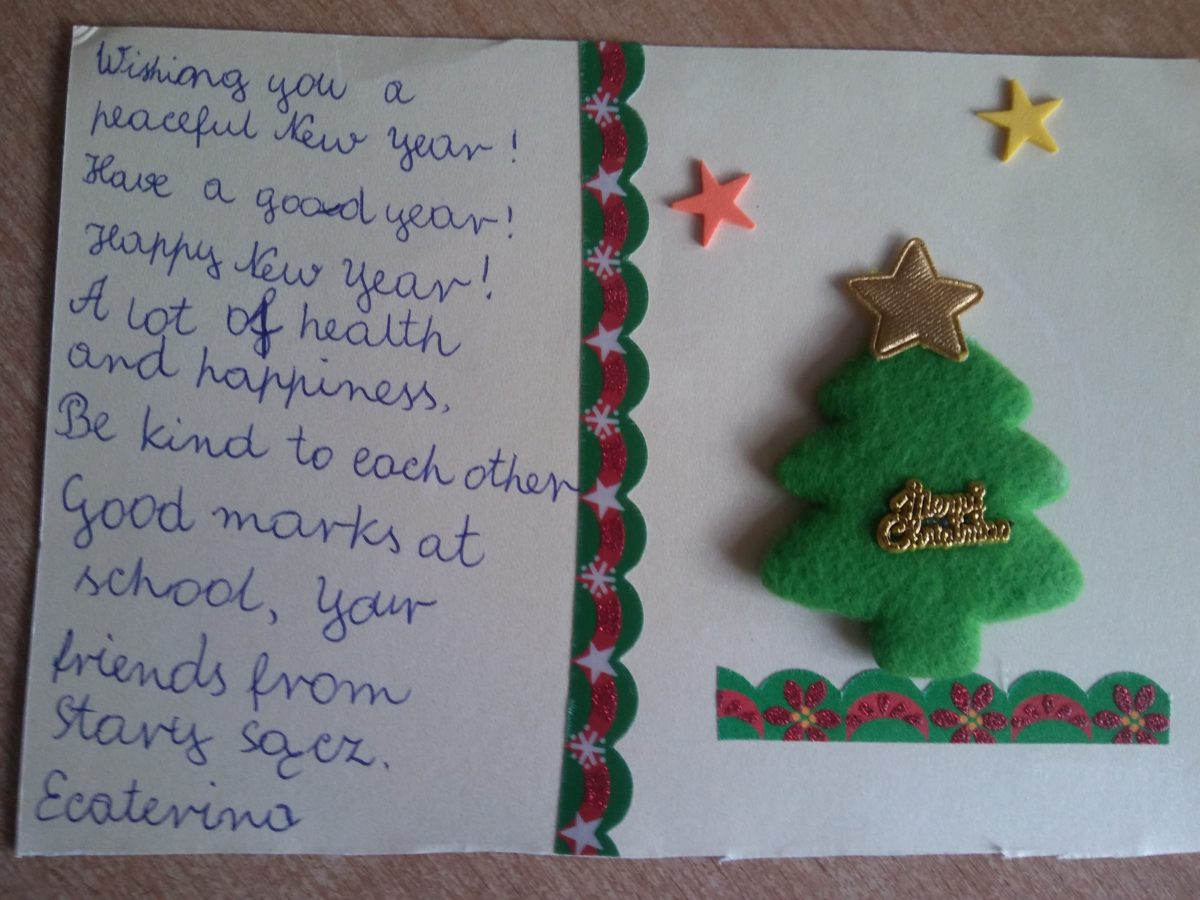 Wishiong you a
peaceful New Year!
Have a good year!
Happy New Year!
A lot of health
and happiness,
Be kind to each other
Good marks at
school, Your
friends from
Stary Sącz.
Ecaterina
Merry
Christmas